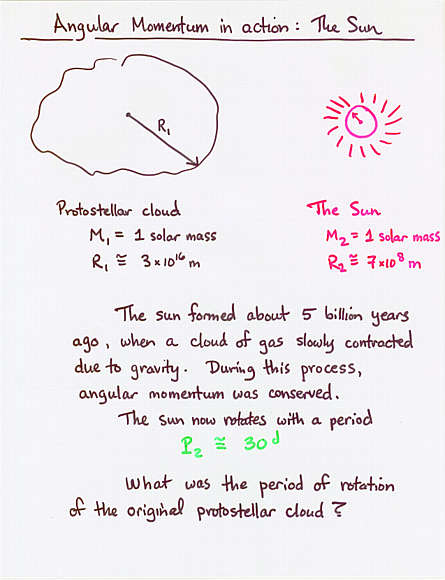 Angular Momentum in action: The Sun
R₁
Protostellar cloud
M₁ = 1 solar mass
R₁ ≅ 3×10¹⁶ m
The Sun
M₂ = 1 solar mass
R₂ ≅ 7×10⁸ m
The sun formed about 5 billion years
ago, when a cloud of gas slowly contracted
due to gravity. During this process,
angular momentum was conserved.
The sun now rotates with a period
P₂ ≅ 30ᵈ
What was the period of rotation
of the original protostellar cloud?